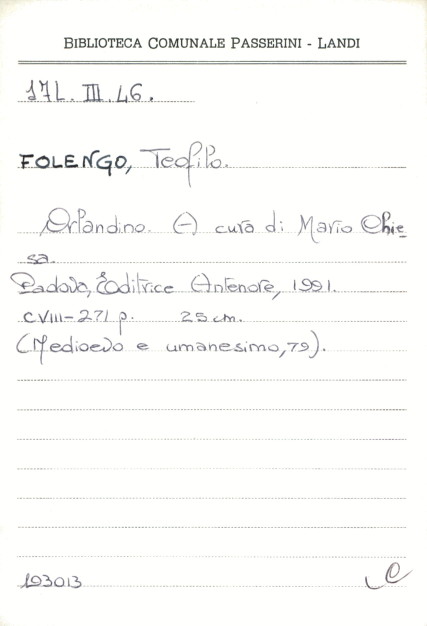 BIBLIOTECA COMUNALE PASSERINI - LANDI
17L. III. 46.
FOLENGO, Teofilo.
Orlandino. A cura di Mario Chie=
sa.
Padova, Editrice Antenore, 1991.
CVIII-271 p. 25 cm.
(Medioevo e umanesimo, 79).
193013